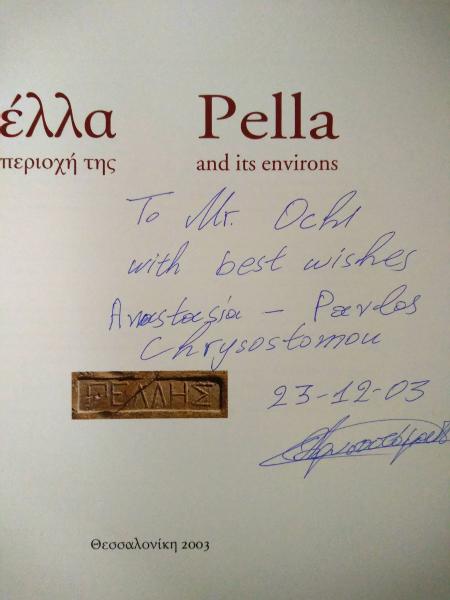 έλλα Pella
περιοχή της and its environs
To Mr. Ochl
with best wishes
Anastasia - Pavlos
Chrysostomou
ΠΕΛΛΗΣ
23-12-03
Θεσσαλονίκη 2003